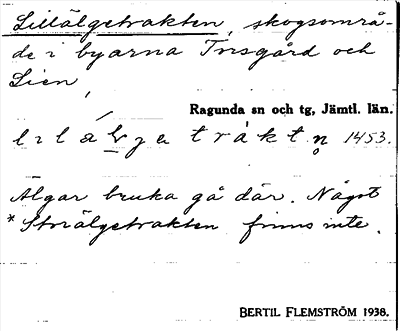 Lillälgetrakten, skogsområ-
de i byarna Trisgård och
Lien,
Ragunda sn och tg, Jämtl. län.
lılálgetráktn̥ 1453.
Älgar bruka gå där. Något
*Storälgetrakten finns inte.
BERTIL FLEMSTRÖM 1938.